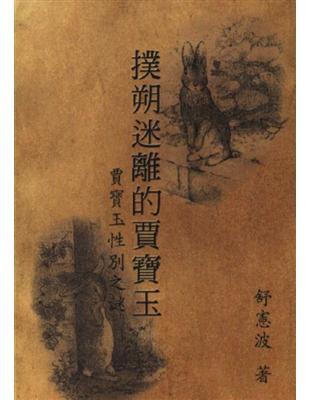 撲朔迷離的賈寶玉
賈寶玉性別之謎
舒憲波 著